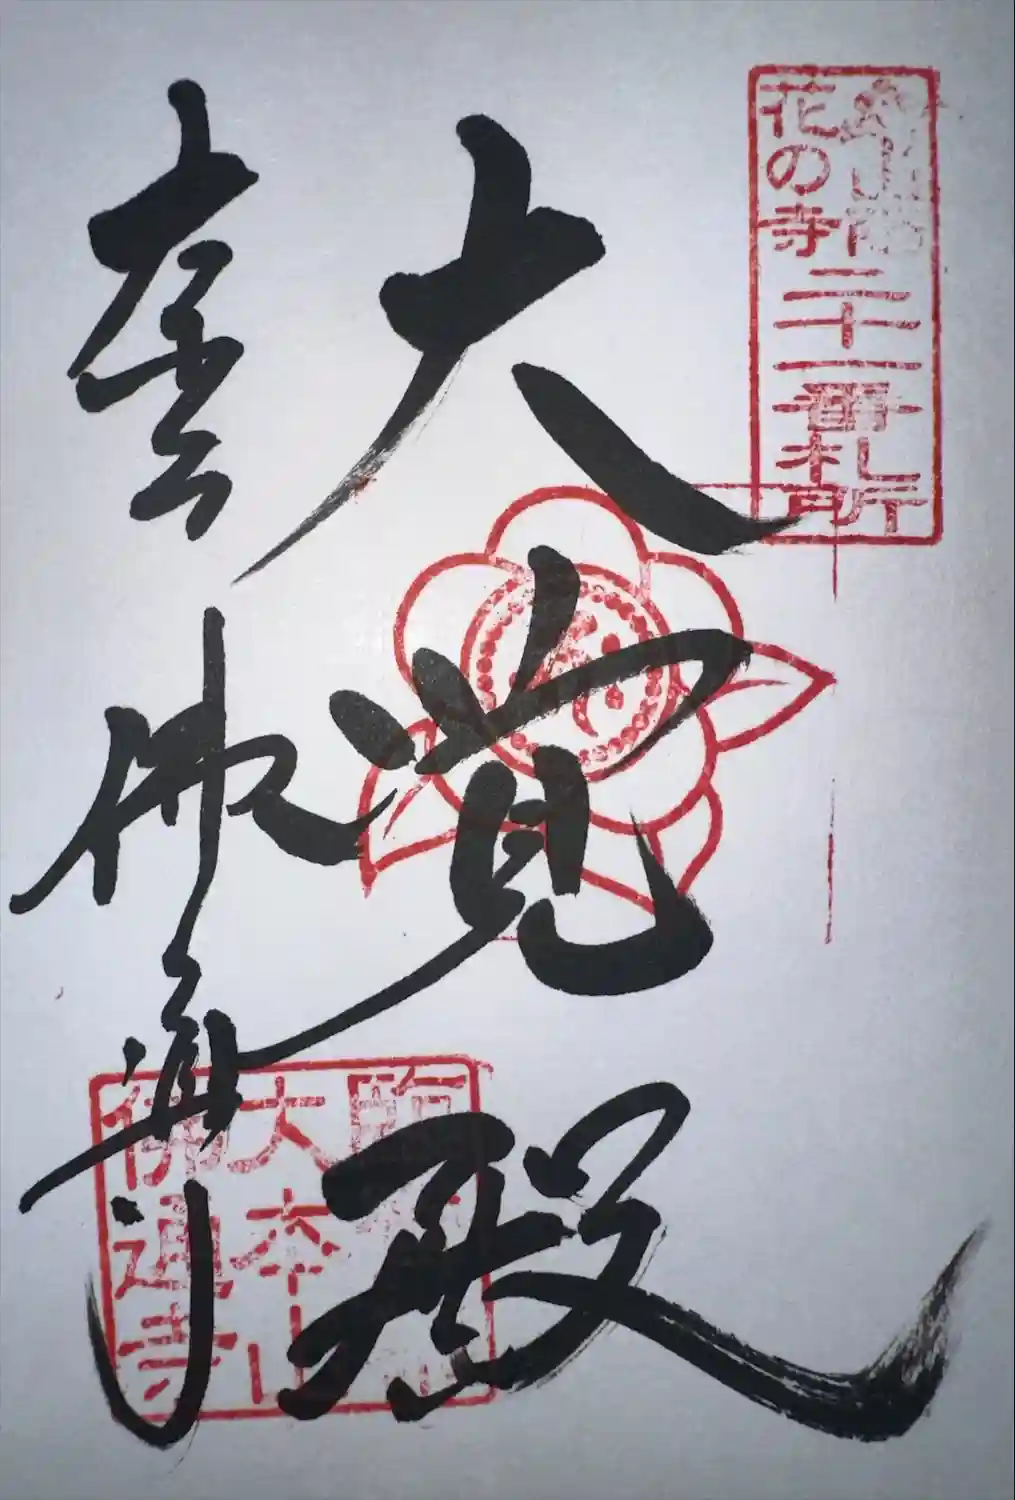 山陽
花の寺
二十一番札所
大覚殿
奉
佛通寺
大本山
佛通寺